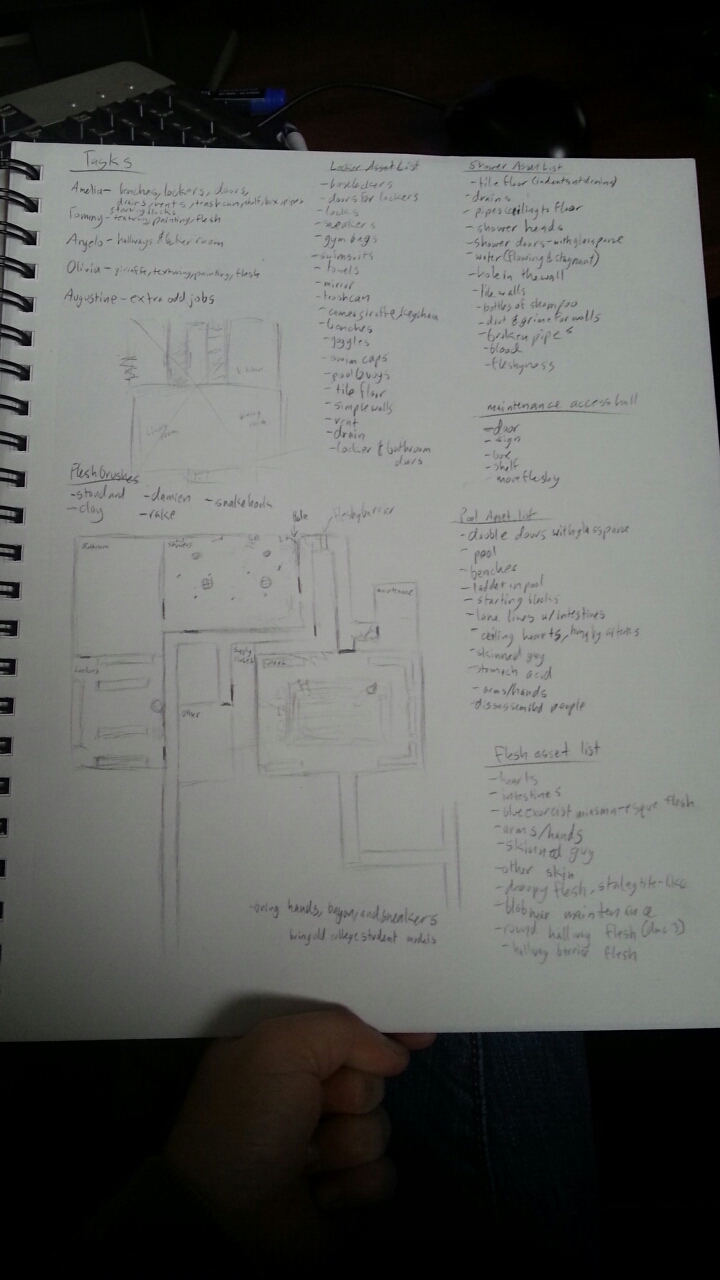 Tasks
Amelia - benches, lockers, doors,
drains, vents, trashcan, shelf, box, pipes
starting blocks
Tommy - texturing, painting, flesh
Angelo - hallways & locker room
Olivia - giraffe, texturing, painting, flesh
Augustine - extra odd jobs
Flesh brushes
- standard
- clay
- damien
- rake
- snakehook
Locker Asset List
- box lockers
- doors for lockers
- locks
- sneakers
- gym bags
- swimsuits
- towels
- mirror
- trashcan
- camera, giraffe keychain
- benches
- goggles
- swim caps
- pool buoys
- tile floor
- simple walls
- vent
- drain
- locker & bathroom
doors
Shower Asset List
- tile floor (indents at drains)
- drains
- pipes ceiling to floor
- shower heads
- shower doors - with glass pane
- water (flowing & stagnant)
- hole in the wall
- tile walls
- bottles of shampoo
- dirt & grime for walls
- broken pipes
- blood
- fleshyness
maintenance access hall
- door
- sign
- box
- shelf
- more fleshy
Pool Asset list
- double doors with glass pane
- pool
- benches
- ladder in pool
- starting blocks
- lane lines w/ intestines
- ceiling hearts, hung by
- skinned guy
- stomach acid
- arms/hands
- disassembled people
Flesh asset list
- hearts
- intestines
- blue exorcist miasma-esque flesh
- arms/hands
- skinned guy
- other skin
- droopy flesh, stalagtite-like
- blob near maintenance
- round hallway flesh (dmc3)
- hallway barrier flesh
Hole
fleshy barrier
Bathroom
Showers
maintenance
Lockers
Supply
Closet
other
- bring hands, bag on, and sneakers
bring old college student models